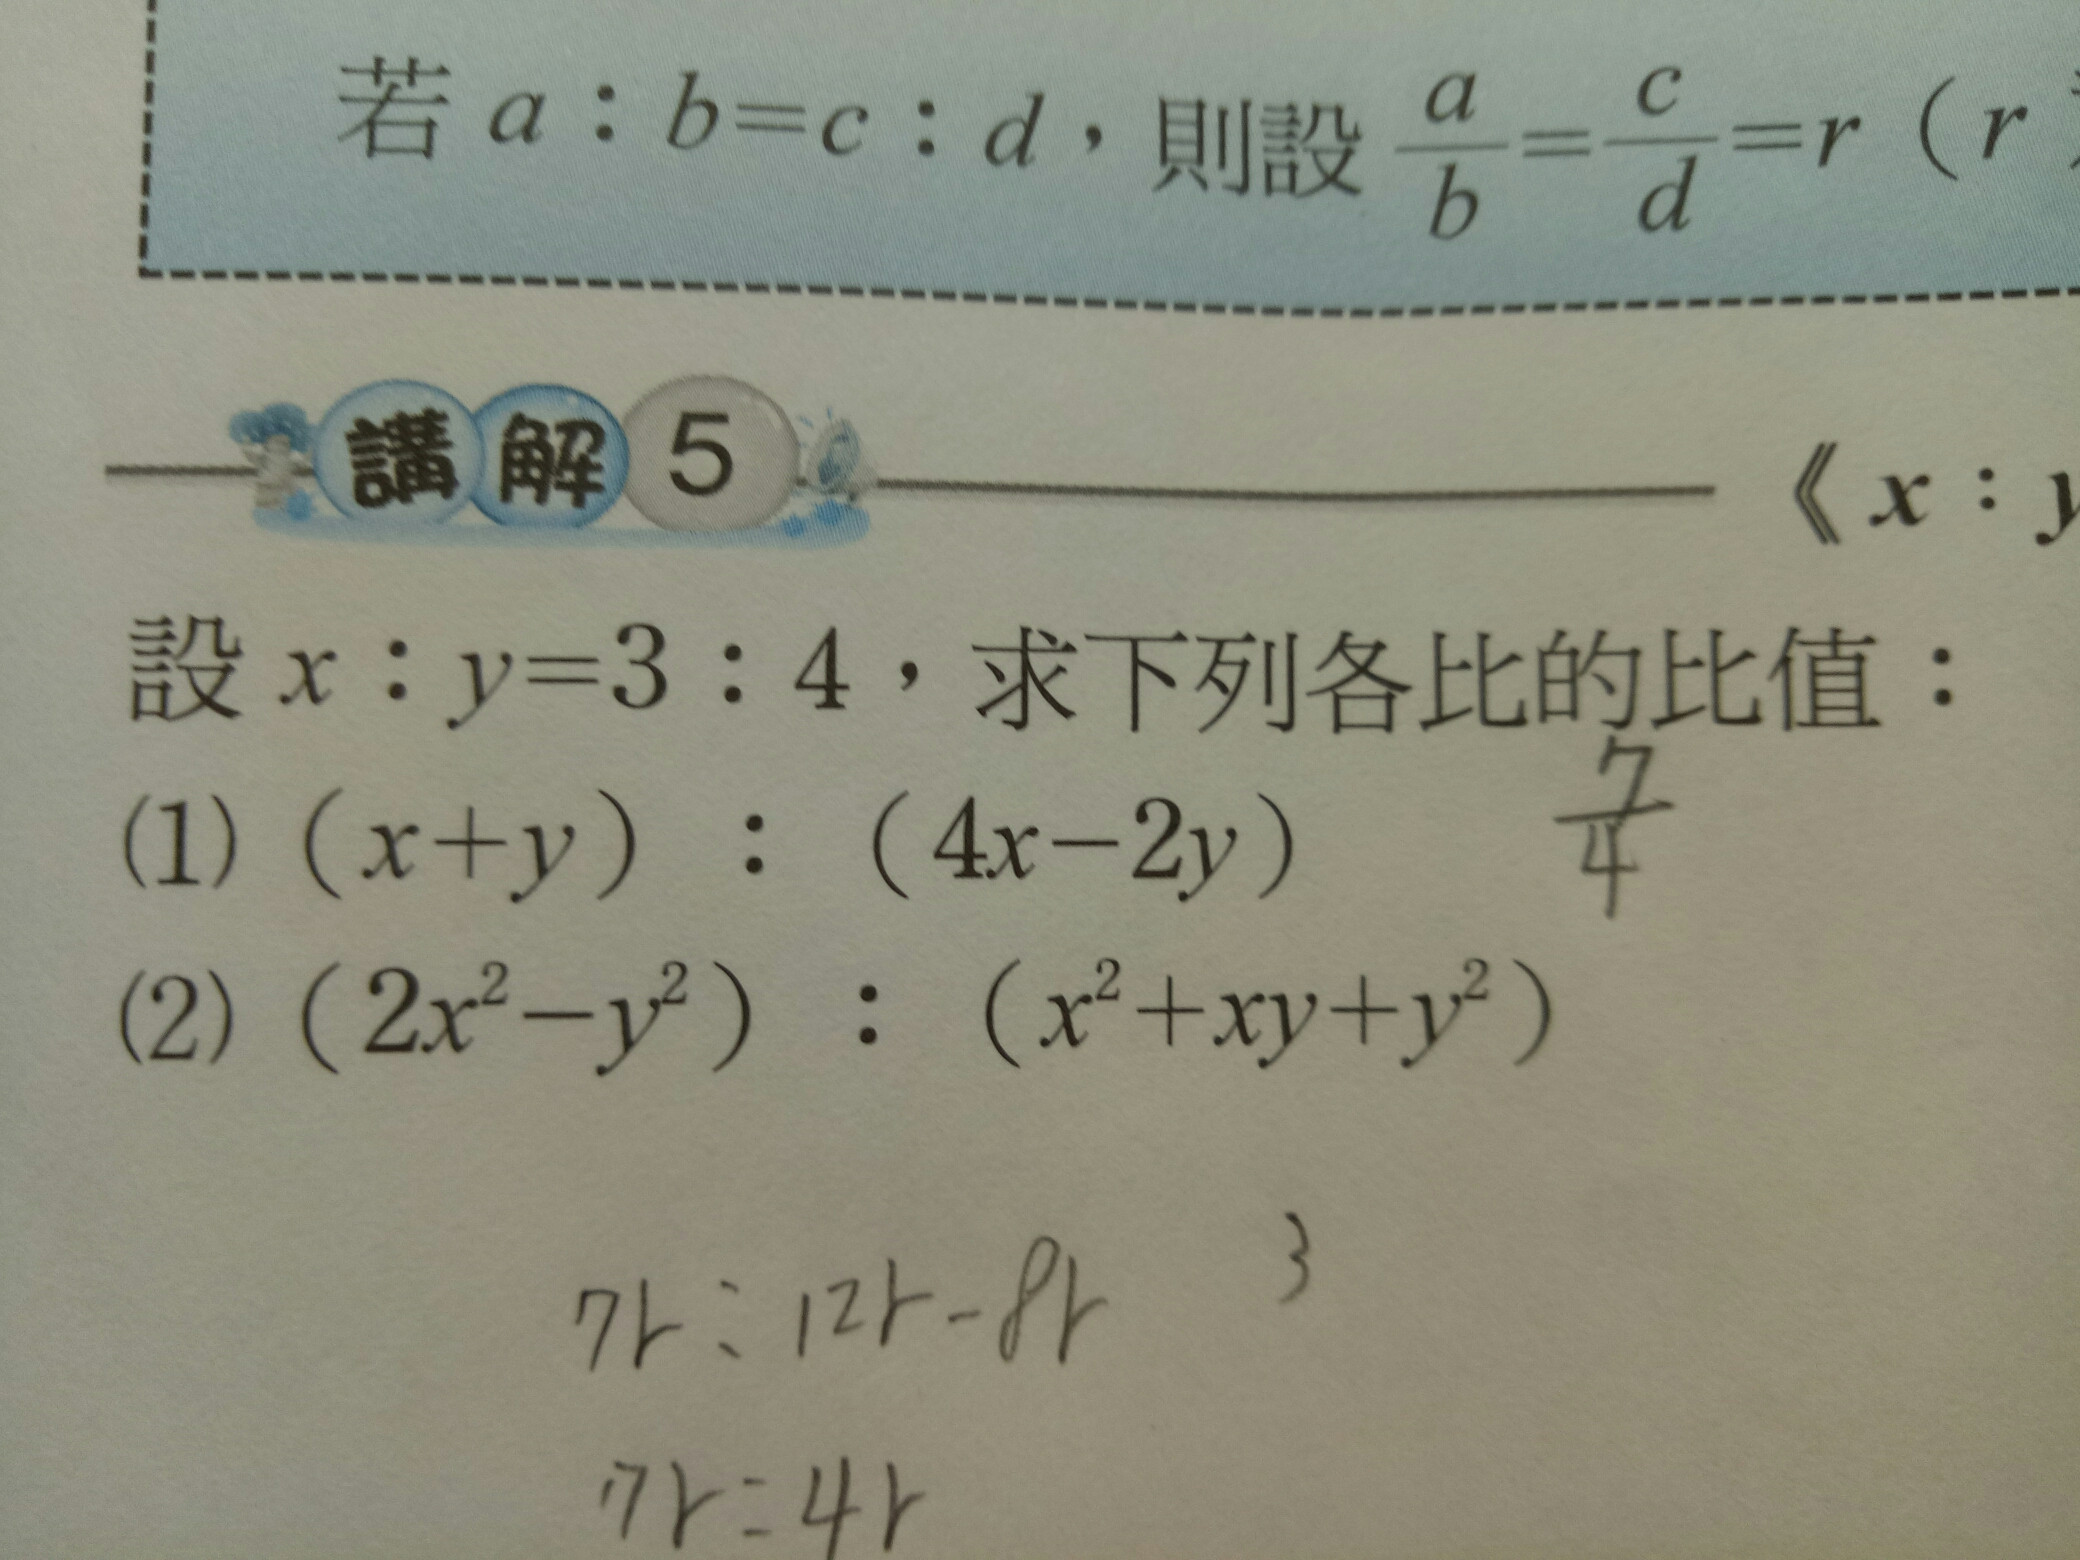 若 a：b=c：d，則設 a/b=c/d=r（r
講解5
《x：y
設 x：y=3：4，求下列各比的比值：
(1)（x+y）：（4x−2y） 7/4
(2)（2x²−y²）：（x²+xy+y²）
7r：12r-8r 3
7r：4r